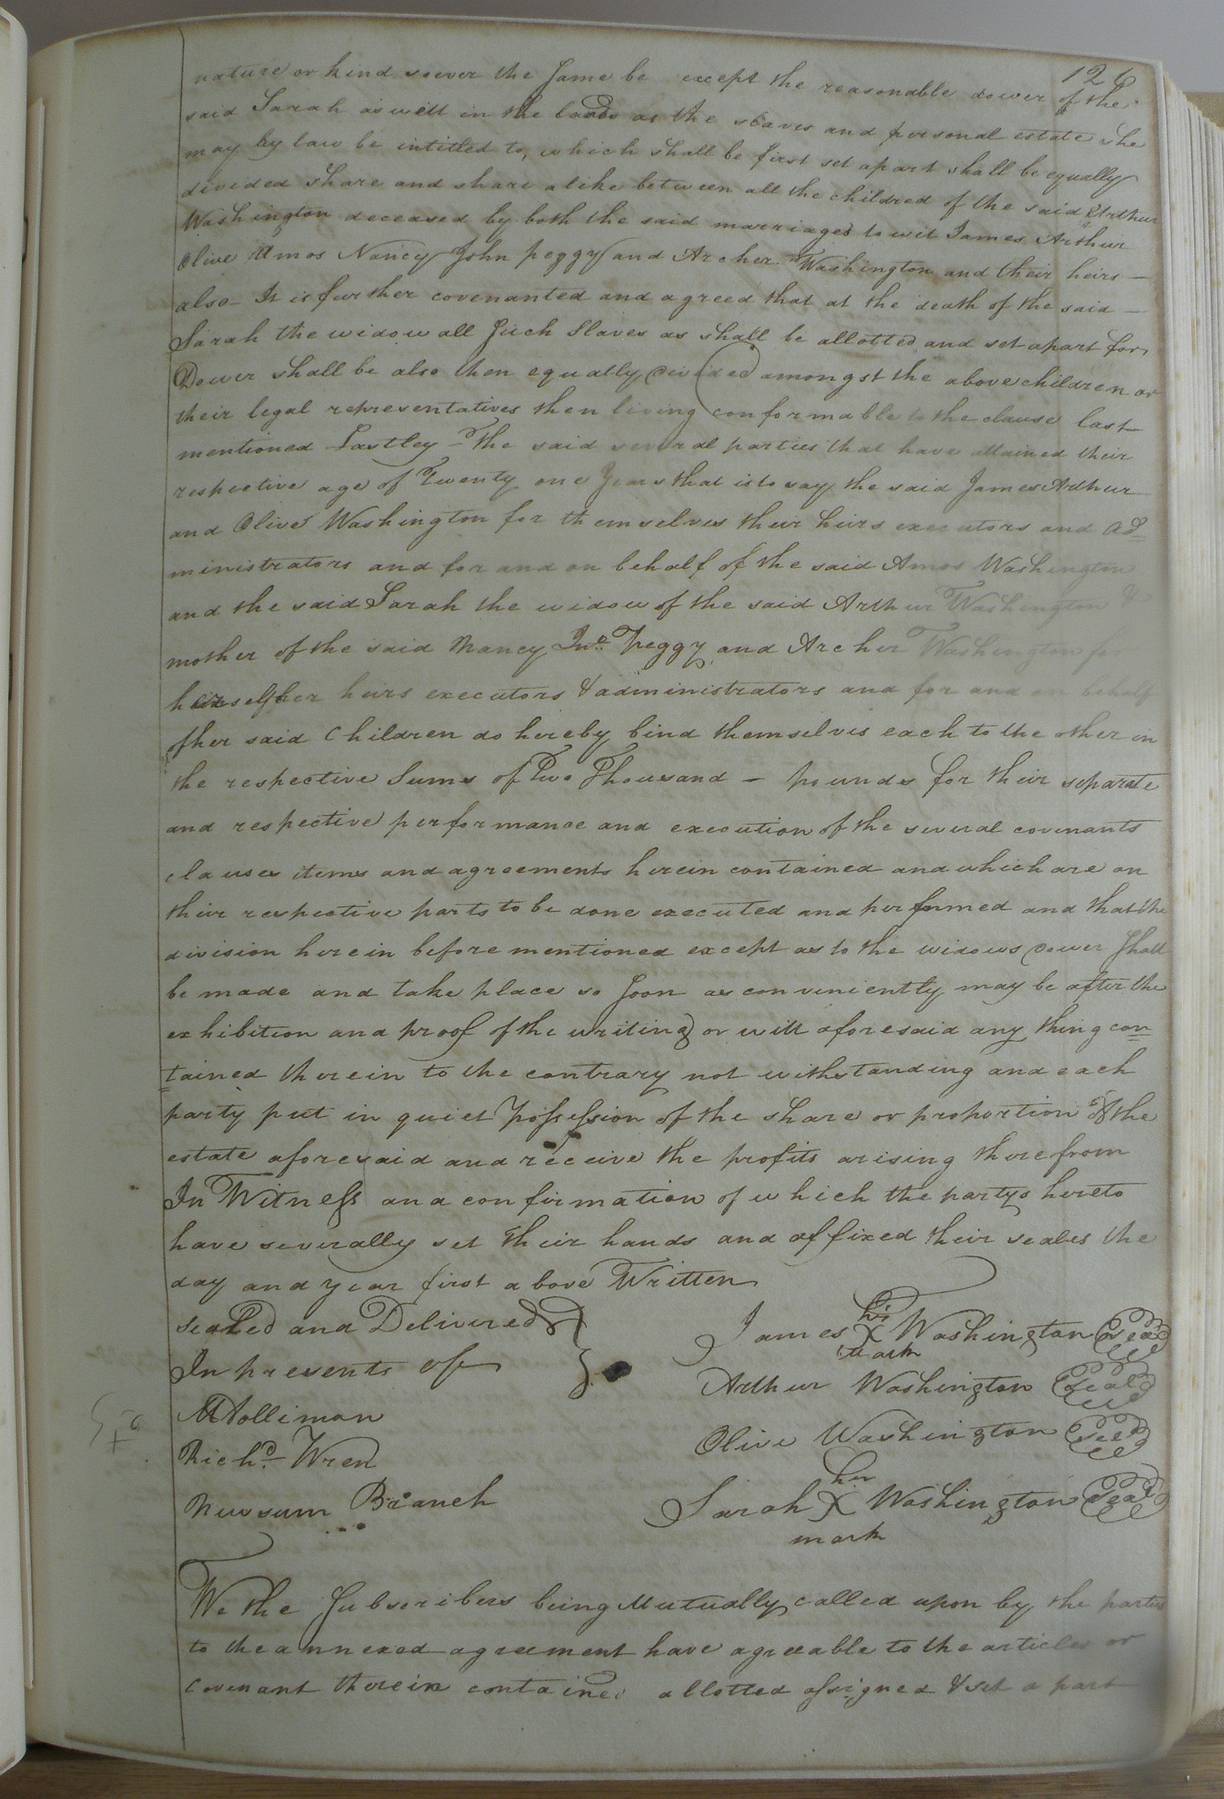 126
nature or kind soever the same be except the reasonable dower of the
said Sarah as well in the lands as the slaves and personal estate she
may by law be intitled to, which shall be first set apart shall be equally
divided share and share alike between all the children of the said Arthur
Washington deceased by both the said marriages to wit James Arthur
Olive Amos Nancy John Peggy and Archer Washington and their heirs —
also It is further covenanted and agreed that at the death of the said —
Sarah the widow all such Slaves as shall be allotted and set apart for
Dower shall be also then equally divided amongst the above children or
their legal representatives then living conformable to the clause last
mentioned Lastley - The said several parties that have attained their
respective age of Twenty one Years that is to say the said James Arthur
and Olive Washington for themselves their heirs executors and ad=
ministrators and for and on behalf of the said Amos Washington
and the said Sarah the widow of the said Arthur Washington &
mother of the said Nancy Jno. Peggy and Archer Washington for
herself her heirs executors & administrators and for and on behalf
of her said Children do hereby bind themselves each to the other in
the respective Sums of Two Thousand — pounds for their separate
and respective performance and execution of the several covenants
clauses items and agreements herein contained and which are on
their respective parts to be done executed and performed and that the
division herein before mentioned except as to the widows dower shall
be made and take place so soon as conveniently may be after the
exhibition and proof of the writing or will aforesaid any thing con=
tained therein to the contrary not withstanding and each
party put in quiet Possession of the share or proportion of the
estate aforesaid and receive the profits arising therefrom
In Witness and confirmation of which the partys hereto
have severally set their hands and affixed their seales the
day and year first above Written
Sealed and Delivered }
In presents of }
James his X mark Washington (seal)
Arthur Washington (seal)
Holliman
Olive Washington (seal)
Richd. Wren
Newsum Branch
Sarah her X mark Washington (seal)
We the Subscribers being Mutually called upon by the parties
to the annexed agreement have agreeable to the articles or
covenant therein contained allotted assigned & set a part